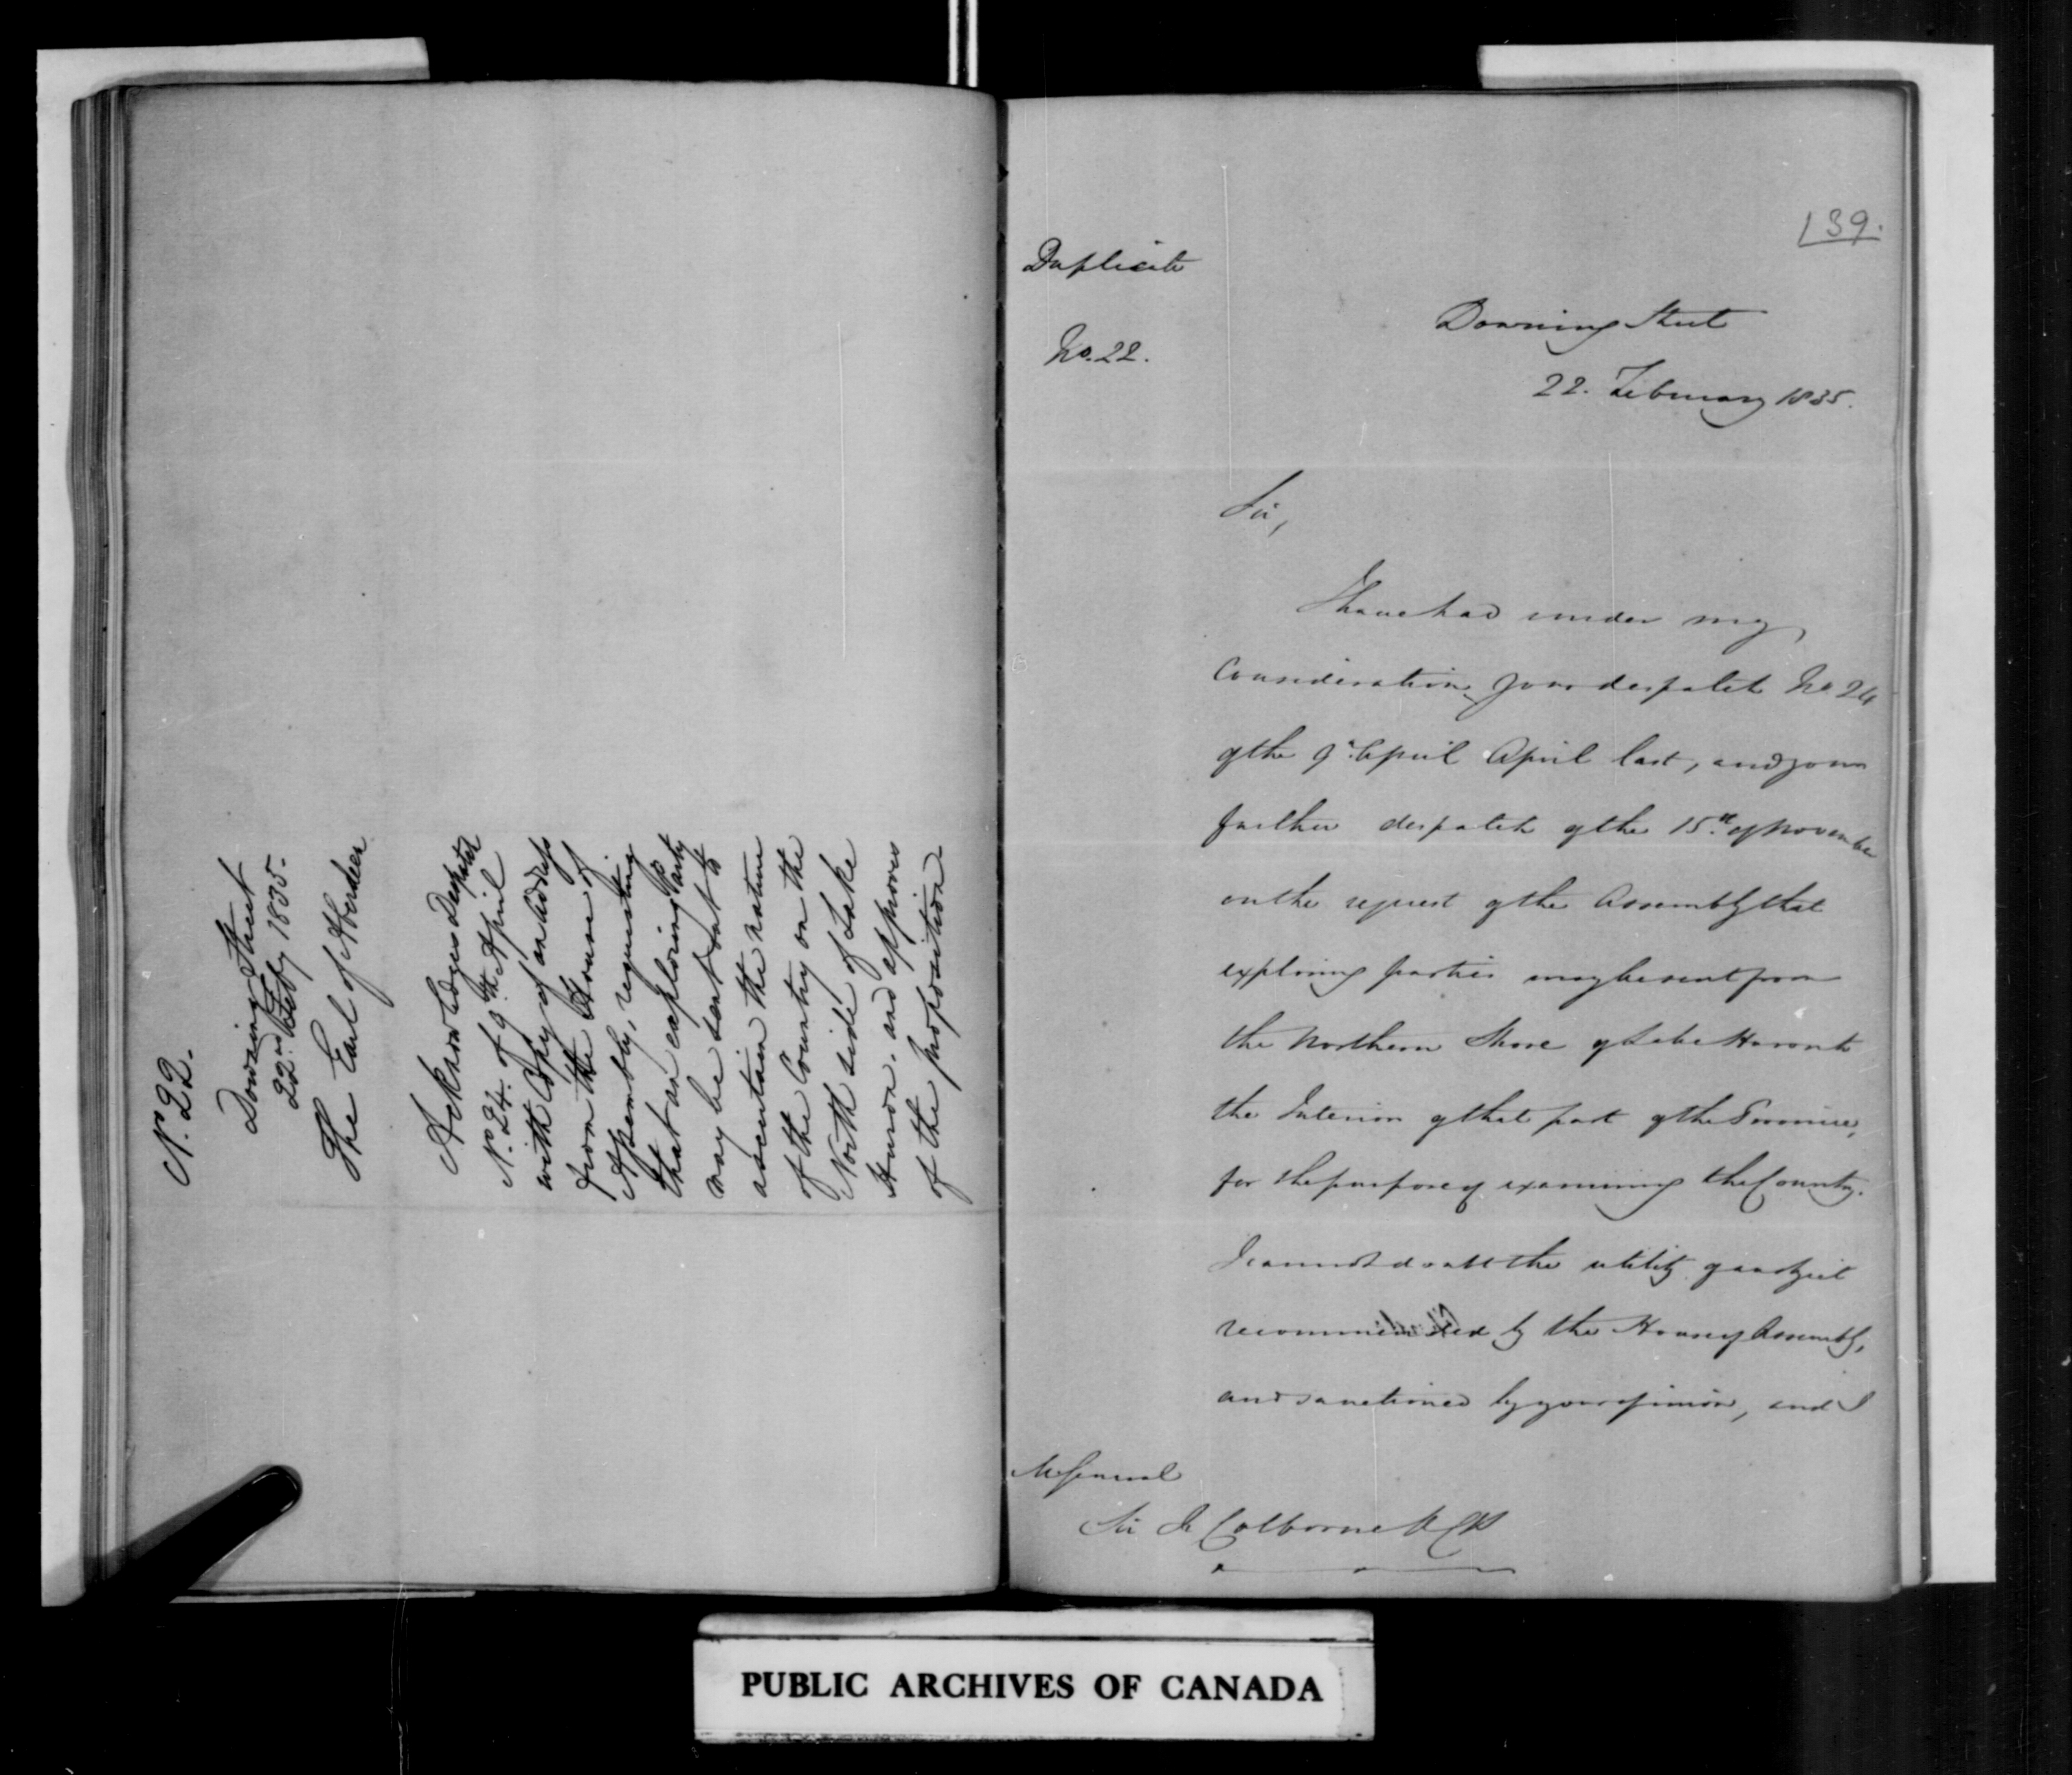 No. 22.
Downing Street
22nd Feby 1835.
The Earl of Aberdeen
Acknowledges Despatch
No. 24. of 9th April
with Copy of an Address
from the House of
Assembly, requesting
that an exploring Party
may be sent out to
ascertain the nature
of the Country on the
North side of Lake
Huron. and approves
of the proposition.
139.
Duplicate
No. 22.
Downing Street
22. February 1835.
Sir,
I have had under my
consideration your despatch No 24
of the 9th April April last, and your
further despatch of the 15th of November
on the request of the Assembly that
exploring parties may be sent from
the Northern Shore of Lake Huron to
the Interior of that part of the Province,
for the purpose of examining the Country.
I cannot doubt the utility of an object
recommended by the House of Assembly,
and sanctioned by your opinion, and I
M General
Sir J. Colborne KCB
PUBLIC ARCHIVES OF CANADA